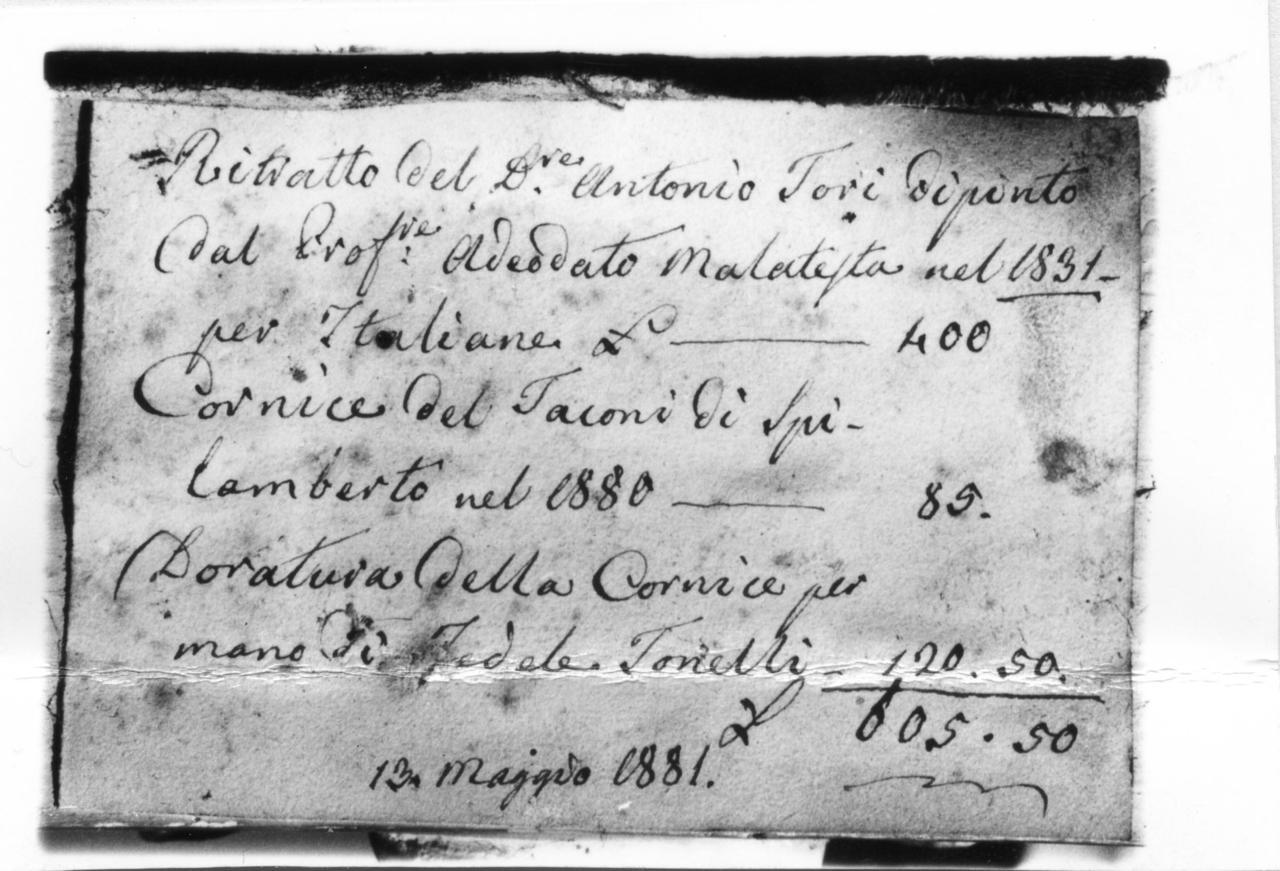 Ritratto del D.re Antonio Tosi dipinto
dal Prof.re Adeodato Malatesta nel 1831-
per Italiane £ — 400
Cornice del Taconi di Spi-
lamberto nel 1880 — 85.
Doratura della Cornice per
mano di Fedele Tonelli - 120.50.
£ 605.50
13. Maggio 1881.